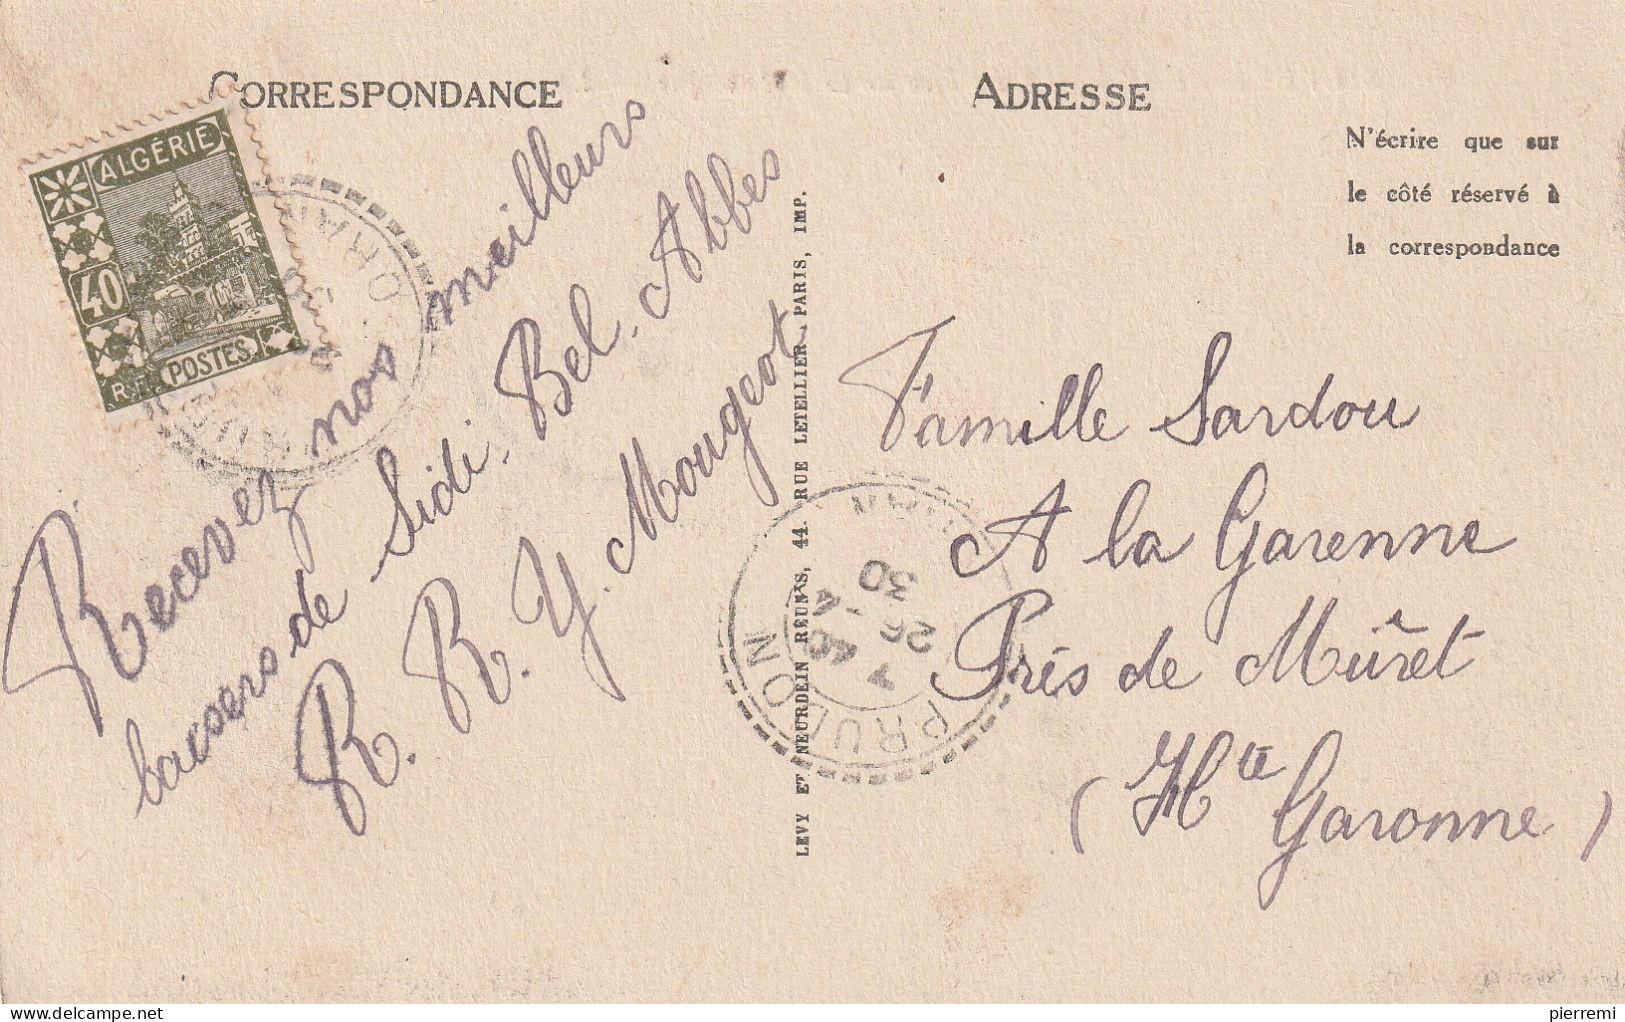 CORRESPONDANCE
ALGÉRIE
40
POSTES
Recevez nos meilleurs
baisers de Sidi-Bel-Abbes
R. R. Y. Mougeot
LEVY ET NEURDEIN RÉUNIS, 44. RUE LETELLIER, PARIS, IMP.
ADRESSE
N'écrire que sur
le côté réservé à
la correspondance
Famille Sardou
A la Garenne
Près de Mûret
(Hte Garonne)
PRUDON
26 -4
30
ORAN
delcampe.net
pierremi